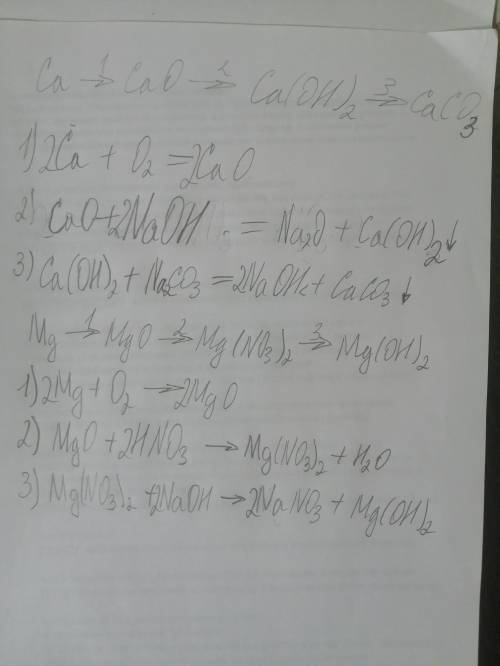 Ca →1 CaO →2 Ca(OH)2 →3 CaCO3
1) 2Ca + O2 = 2CaO
2) CaO + 2NaOH = Na2O + Ca(OH)2↓
3) Ca(OH)2 + Na2CO3 = 2NaOH + CaCO3↓
Mg →1 MgO →2 Mg(NO3)2 →3 Mg(OH)2
1) 2Mg + O2 → 2MgO
2) MgO + 2HNO3 → Mg(NO3)2 + H2O
3) Mg(NO3)2 + 2NaOH → 2NaNO3 + Mg(OH)2